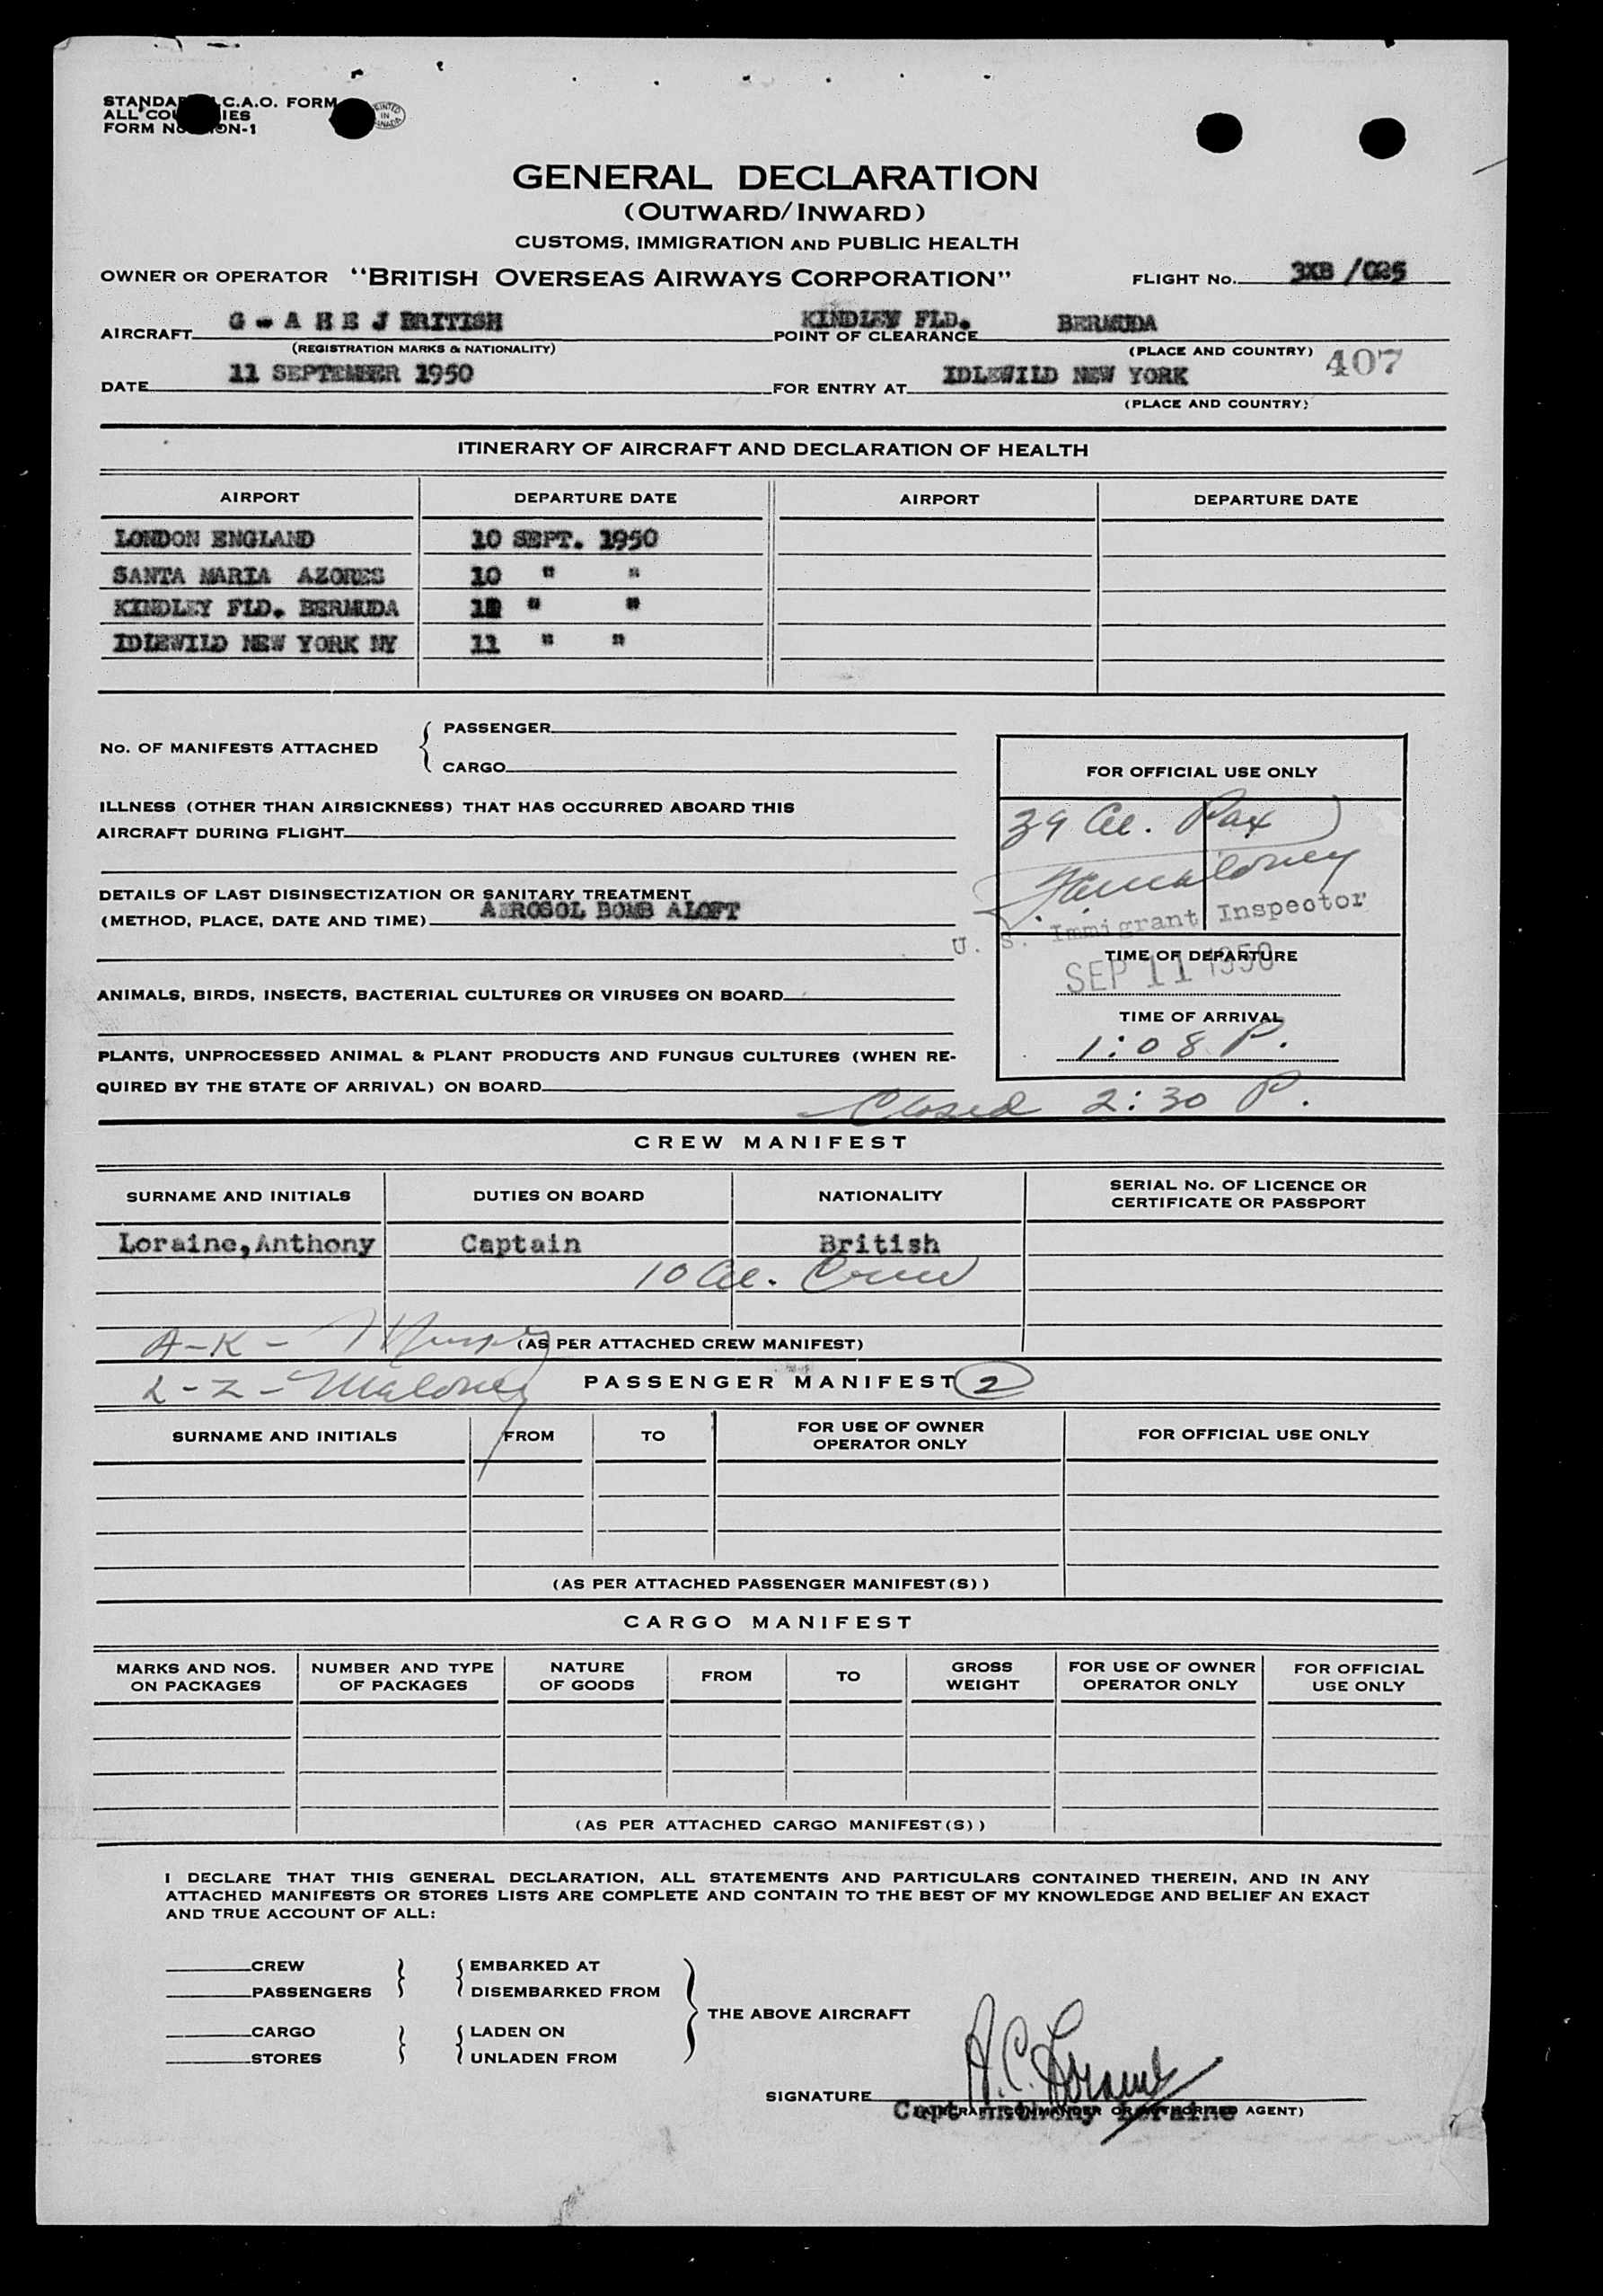 STANDA C.A.O. FORM
ALL COU IES
FORM NO ON-1
PRINTED IN CANADA
GENERAL DECLARATION
(OUTWARD/INWARD)
CUSTOMS, IMMIGRATION AND PUBLIC HEALTH
OWNER OR OPERATOR "BRITISH OVERSEAS AIRWAYS CORPORATION" FLIGHT No. 3XB /025
AIRCRAFT G - A H E J BRITISH KINDLEY FLD. BERMUDA
POINT OF CLEARANCE
(REGISTRATION MARKS & NATIONALITY) (PLACE AND COUNTRY) 407
DATE 11 SEPTEMBER 1950 FOR ENTRY AT IDLEWILD NEW YORK
(PLACE AND COUNTRY)
ITINERARY OF AIRCRAFT AND DECLARATION OF HEALTH
AIRPORT DEPARTURE DATE AIRPORT DEPARTURE DATE
LONDON ENGLAND 10 SEPT. 1950
SANTA MARIA AZORES 10 " "
KINDLEY FLD. BERMUDA " "
IDLEWILD NEW YORK NY 11 " "
No. OF MANIFESTS ATTACHED { PASSENGER
CARGO
FOR OFFICIAL USE ONLY
ILLNESS (OTHER THAN AIRSICKNESS) THAT HAS OCCURRED ABOARD THIS
AIRCRAFT DURING FLIGHT
39 Ce. Pax
Maloney
DETAILS OF LAST DISINSECTIZATION OR SANITARY TREATMENT
(METHOD, PLACE, DATE AND TIME) AEROSOL BOMB ALOFT
U. S. Immigrant Inspector
TIME OF DEPARTURE
SEP 11 1950
ANIMALS, BIRDS, INSECTS, BACTERIAL CULTURES OR VIRUSES ON BOARD
TIME OF ARRIVAL
1:08 P.
PLANTS, UNPROCESSED ANIMAL & PLANT PRODUCTS AND FUNGUS CULTURES (WHEN RE-
QUIRED BY THE STATE OF ARRIVAL) ON BOARD
Closed 2:30 P.
CREW MANIFEST
SURNAME AND INITIALS DUTIES ON BOARD NATIONALITY SERIAL No. OF LICENCE OR
CERTIFICATE OR PASSPORT
Loraine,Anthony Captain British
10 Ce. Crew
A-K- Murphy (AS PER ATTACHED CREW MANIFEST)
L-Z- Maloney PASSENGER MANIFEST 2
SURNAME AND INITIALS FROM TO FOR USE OF OWNER
OPERATOR ONLY FOR OFFICIAL USE ONLY
(AS PER ATTACHED PASSENGER MANIFEST(S))
CARGO MANIFEST
MARKS AND NOS. NUMBER AND TYPE NATURE FROM TO GROSS FOR USE OF OWNER FOR OFFICIAL
ON PACKAGES OF PACKAGES OF GOODS WEIGHT OPERATOR ONLY USE ONLY
(AS PER ATTACHED CARGO MANIFEST(S))
I DECLARE THAT THIS GENERAL DECLARATION, ALL STATEMENTS AND PARTICULARS CONTAINED THEREIN, AND IN ANY
ATTACHED MANIFESTS OR STORES LISTS ARE COMPLETE AND CONTAIN TO THE BEST OF MY KNOWLEDGE AND BELIEF AN EXACT
AND TRUE ACCOUNT OF ALL:
CREW } { EMBARKED AT
PASSENGERS } { DISEMBARKED FROM
THE ABOVE AIRCRAFT
CARGO } { LADEN ON
STORES } { UNLADEN FROM
SIGNATURE A.C. Loraine
(AIRCRAFT COMMANDER OR AUTHORIZED AGENT)
Capt Anthony Loraine